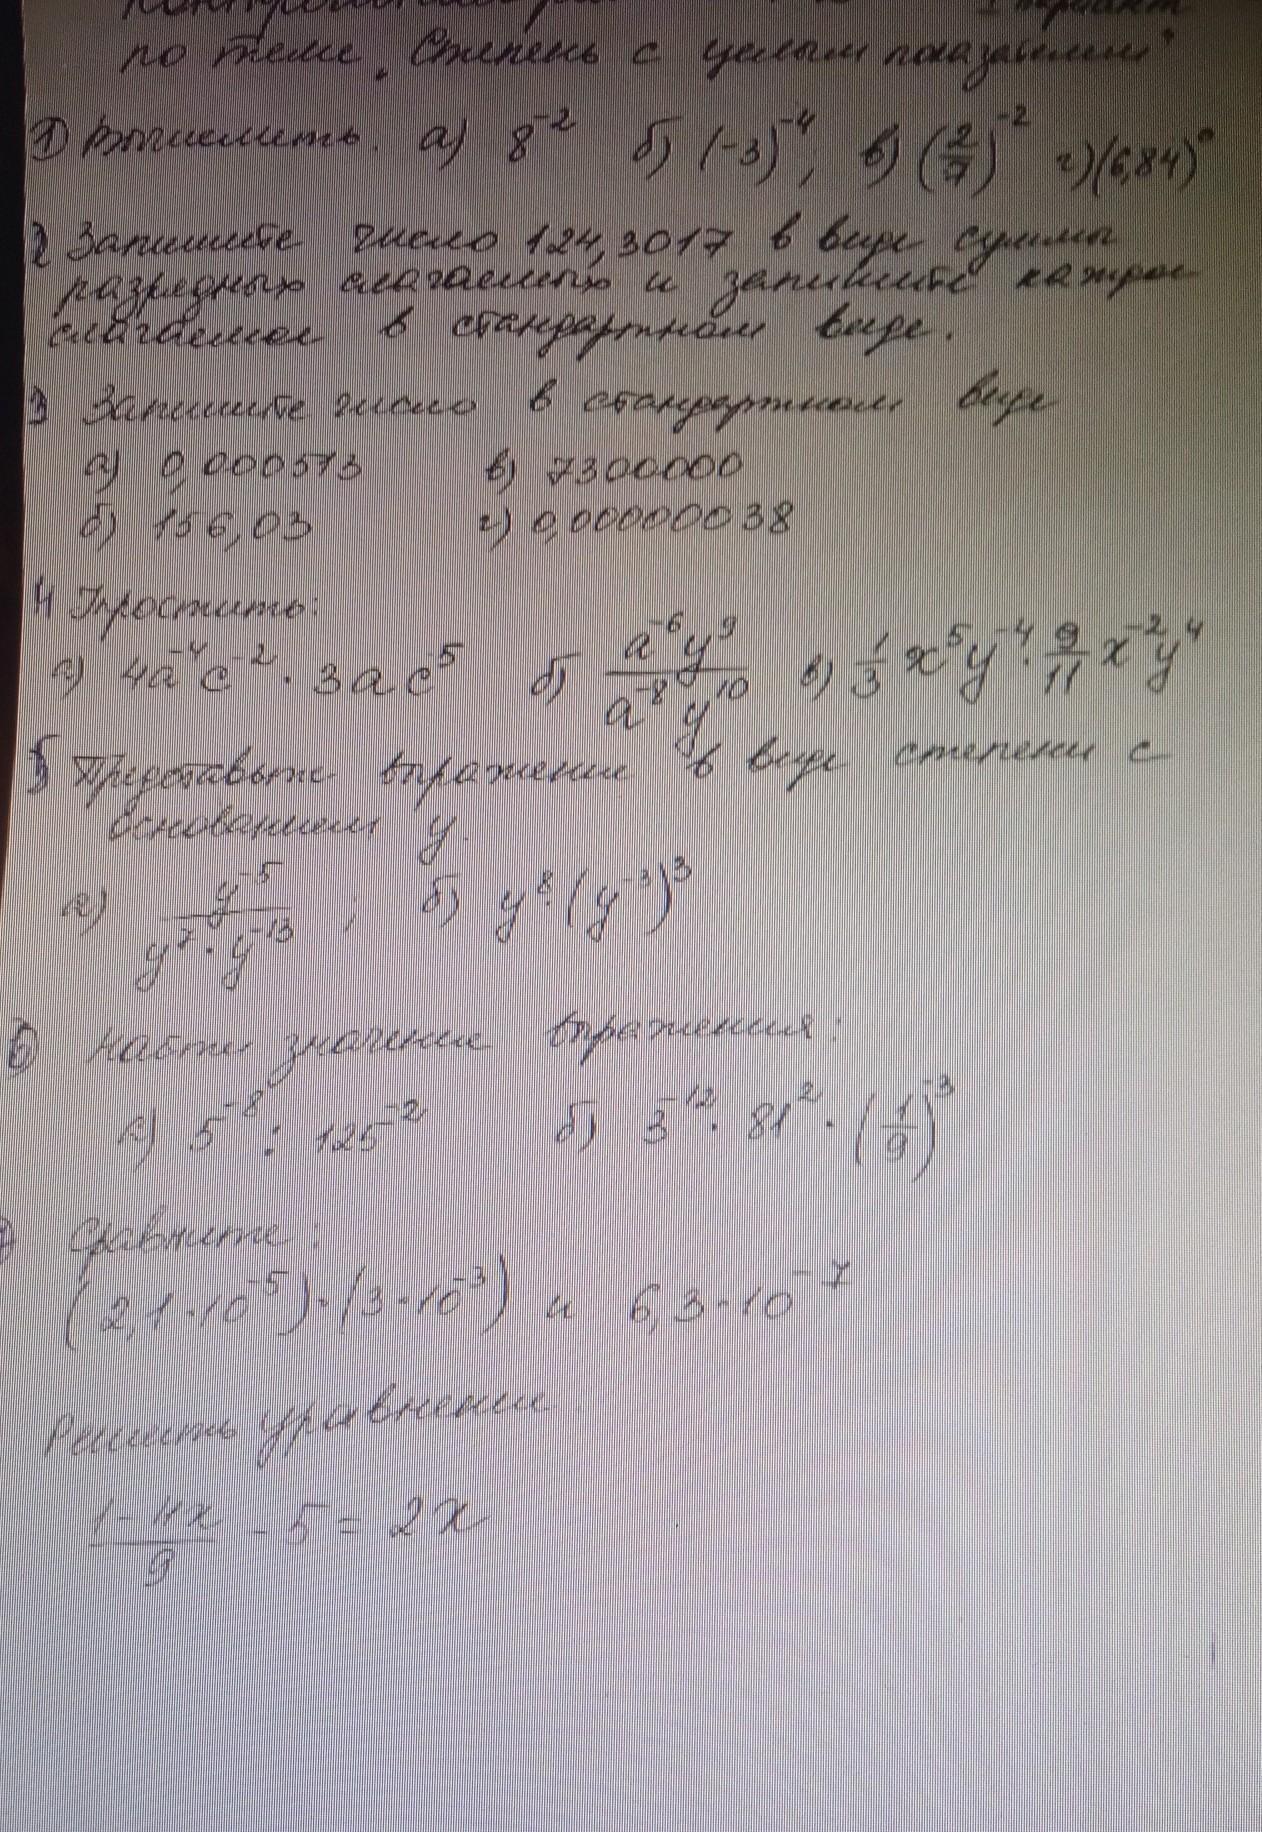 по теме „Степень с целым показателем"
1) Вычислить. а) 8⁻² б) (-3)⁻⁴; в) (2/7)⁻² г) (6,84)⁰
2 Запишите число 124,3017 в виде суммы
разрядных слагаемых и запишите каждое
слагаемое в стандартном виде.
3 Запишите число в стандартном виде
а) 0,000573 в) 7300000
б) 156,03 г) 0,00000038
4 Упростить:
а) 4a⁻⁴c⁻² · 3ac⁵ б) a⁻⁶y⁹/a⁻⁸y¹⁰ в) 1/3 x⁵y⁻⁴ · 9/11 x⁻²y⁴
5 Представьте выражение в виде степени с
основанием y.
а) y⁻⁵/y⁷·y⁻¹³; б) y⁸·(y⁻³)³
6) Найти значение выражения:
а) 5⁻⁸ : 125⁻² б) 3⁻¹² · 81² · (1/9)⁻³
Сравните:
(2,1·10⁻⁵)·(3·10⁻³) и 6,3·10⁻⁷
Решить уравнение
1-11x/9 - 5 = 2x